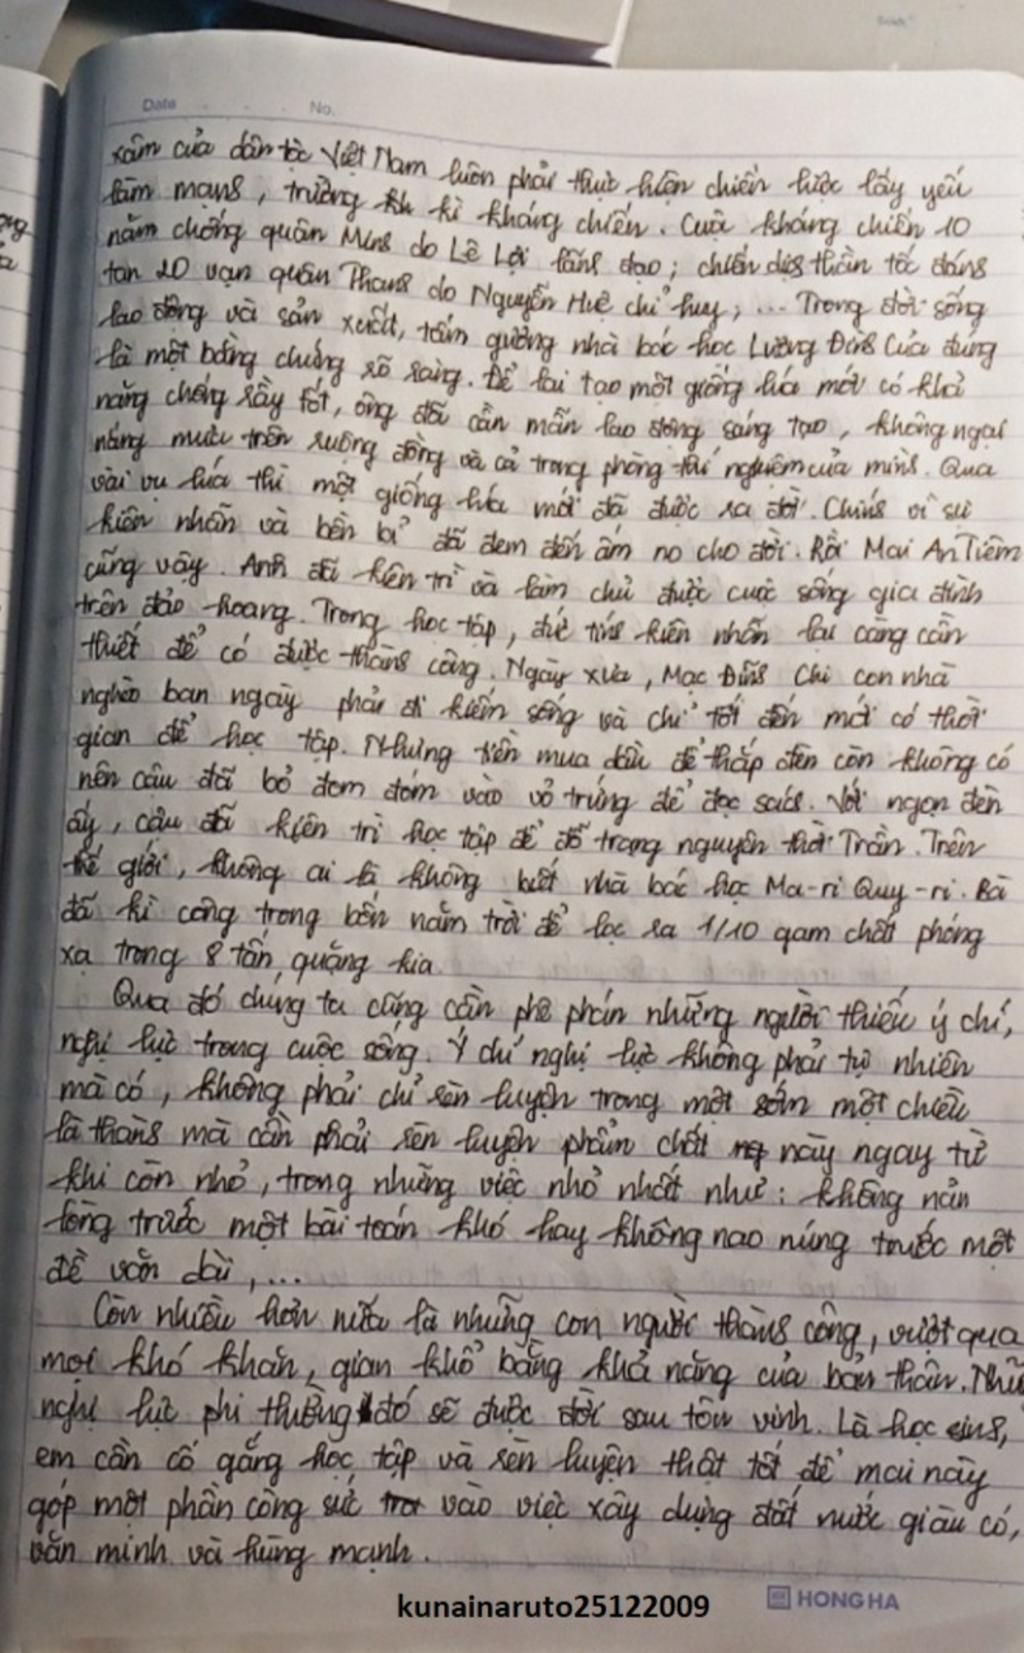 Date No.
xâm của dân tộc Việt Nam luôn phải thực hiện chiến lược lấy yếu
làm mạnh, trường kì kháng chiến. Cuộc kháng chiến 10
năm chống quân Minh do Lê Lợi lãnh đạo; chiến dịch thần tốc đánh
tan 20 vạn quân Thanh do Nguyễn Huệ chỉ huy; ... Trong đời sống
lao động và sản xuất, tấm gương nhà bác học Lương Định Của cũng
là một bằng chứng rõ ràng. Để lai tạo một giống lúa mới có khả
năng chống rầy tốt, ông đã cần mẫn lao động sáng tạo, không ngại
nắng mưa trên ruộng đồng và cả trong phòng thí nghiệm của mình. Qua
vài vụ lúa thì một giống lúa mới đã được ra đời. Chính vì sự
kiên nhẫn và bền bỉ đã đem đến ấm no cho đời. Rồi Mai An Tiêm
cũng vậy. Anh đã kiên trì và làm chủ được cuộc sống gia đình
trên đảo hoang. Trong học tập, đức tính kiên nhẫn lại càng cần
thiết để có được thành công. Ngày xưa, Mạc Đĩnh Chi con nhà
nghèo ban ngày phải đi kiếm sống và chỉ tối đến mới có thời
gian để học tập. Nhưng tiền mua dầu để thắp đèn còn không có
nên cậu đã bỏ đom đóm vào vỏ trứng để đọc sách. Với ngọn đèn
ấy, cậu đã kiên trì học tập để đỗ trạng nguyên thời Trần. Trên
thế giới, không ai là không biết nhà bác học Ma-ri Quy-ri. Bà
đã kì công trong bốn năm trời để lọc ra 1/10 gam chất phóng
xạ trong 8 tấn quặng kia.
Qua đó chúng ta cũng cần phê phán những người thiếu ý chí,
nghị lực trong cuộc sống. Ý chí nghị lực không phải tự nhiên
mà có, không phải chỉ rèn luyện trong một sớm một chiều
là thành mà cần phải rèn luyện phẩm chất này ngay từ
khi còn nhỏ, trong những việc nhỏ nhất như: không nản
lòng trước một bài toán khó hay không nao núng trước một
đề văn dài,...
Còn nhiều hơn nữa là những con người thành công, vượt qua
mọi khó khăn, gian khổ bằng khả năng của bản thân. Nhữ
nghị lực phi thường đó sẽ được đời sau tôn vinh. Là học sinh,
em cần cố gắng học tập và rèn luyện thật tốt để mai này
góp một phần công sức vào việc xây dựng đất nước giàu có,
văn minh và hùng mạnh.
kunainaruto25122009
HONG HA